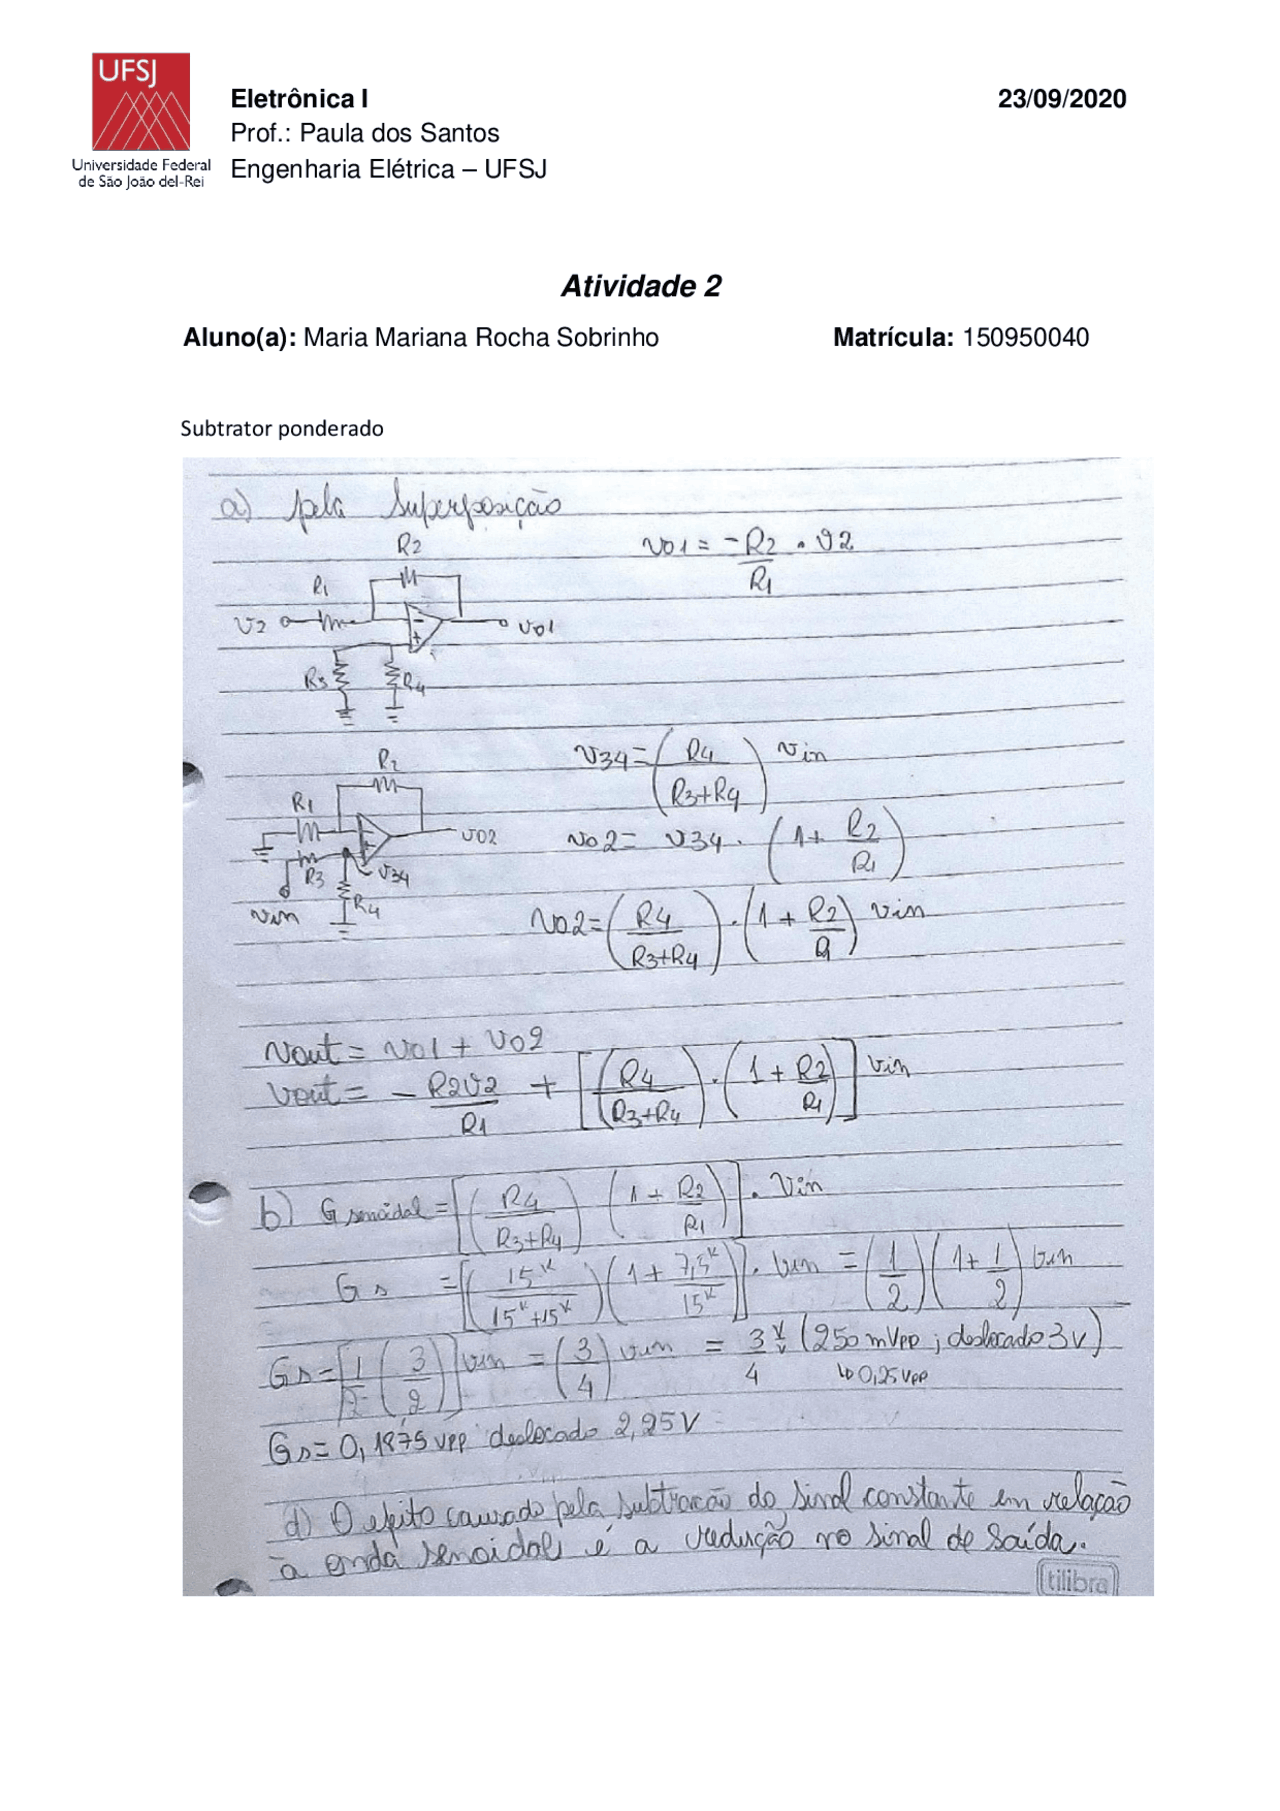 UFSJ
Universidade Federal
de São João del-Rei
Eletrônica I 23/09/2020
Prof.: Paula dos Santos
Engenharia Elétrica – UFSJ
Atividade 2
Aluno(a): Maria Mariana Rocha Sobrinho Matrícula: 150950040
Subtrator ponderado
a) pela Superposição
R2
R1
V2
Vo1
R3 R4
Vo1 = -R2/R1 . V2
R2
R1
Vo2
R3
V34
R4
Vin
V34 = (R4/(R3+R4)) Vin
Vo2 = V34 . (1 + R2/R1)
Vo2 = (R4/(R3+R4)) . (1 + R2/R1) Vin
Vout = Vo1 + Vo2
Vout = - R2V2/R1 + [(R4/(R3+R4)) . (1 + R2/R1)] Vin
b) G senoidal = [(R4/(R3+R4)) (1 + R2/R1)] . Vin
Gs = [(15K/(15K+15K)) (1 + 7,5K/15K)] . Vin = (1/2) (1 + 1/2) Vin
Gs = [1/2 (3/2)] Vin = (3/4) Vin = 3/4 V/V (250 mVpp ; deslocado 3V)
↳ 0,25 Vpp
Gs = 0,1875 Vpp deslocado 2,25V
d) O efeito causado pela subtração do sinal constante em relação
à onda senoidal é a redução no sinal de saída.
tilibra